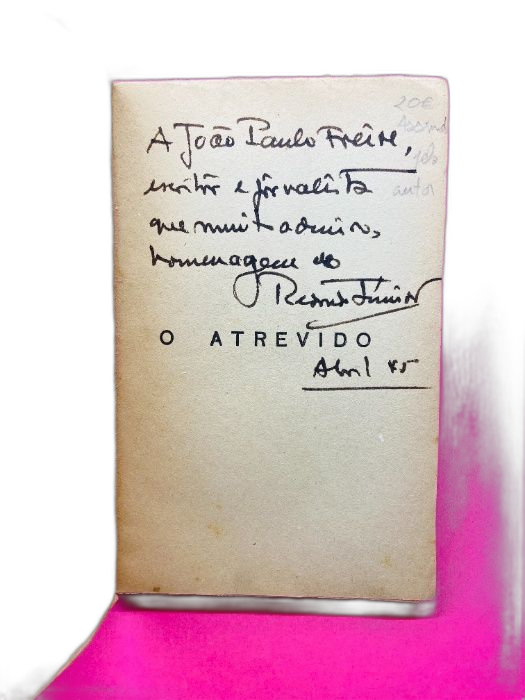 A João Paulo Freire,
escritor e jornalista
que muito admiro,
homenagem do
Redondo Júnior
O ATREVIDO
Abril 45
20€
Assinado
pelo
autor